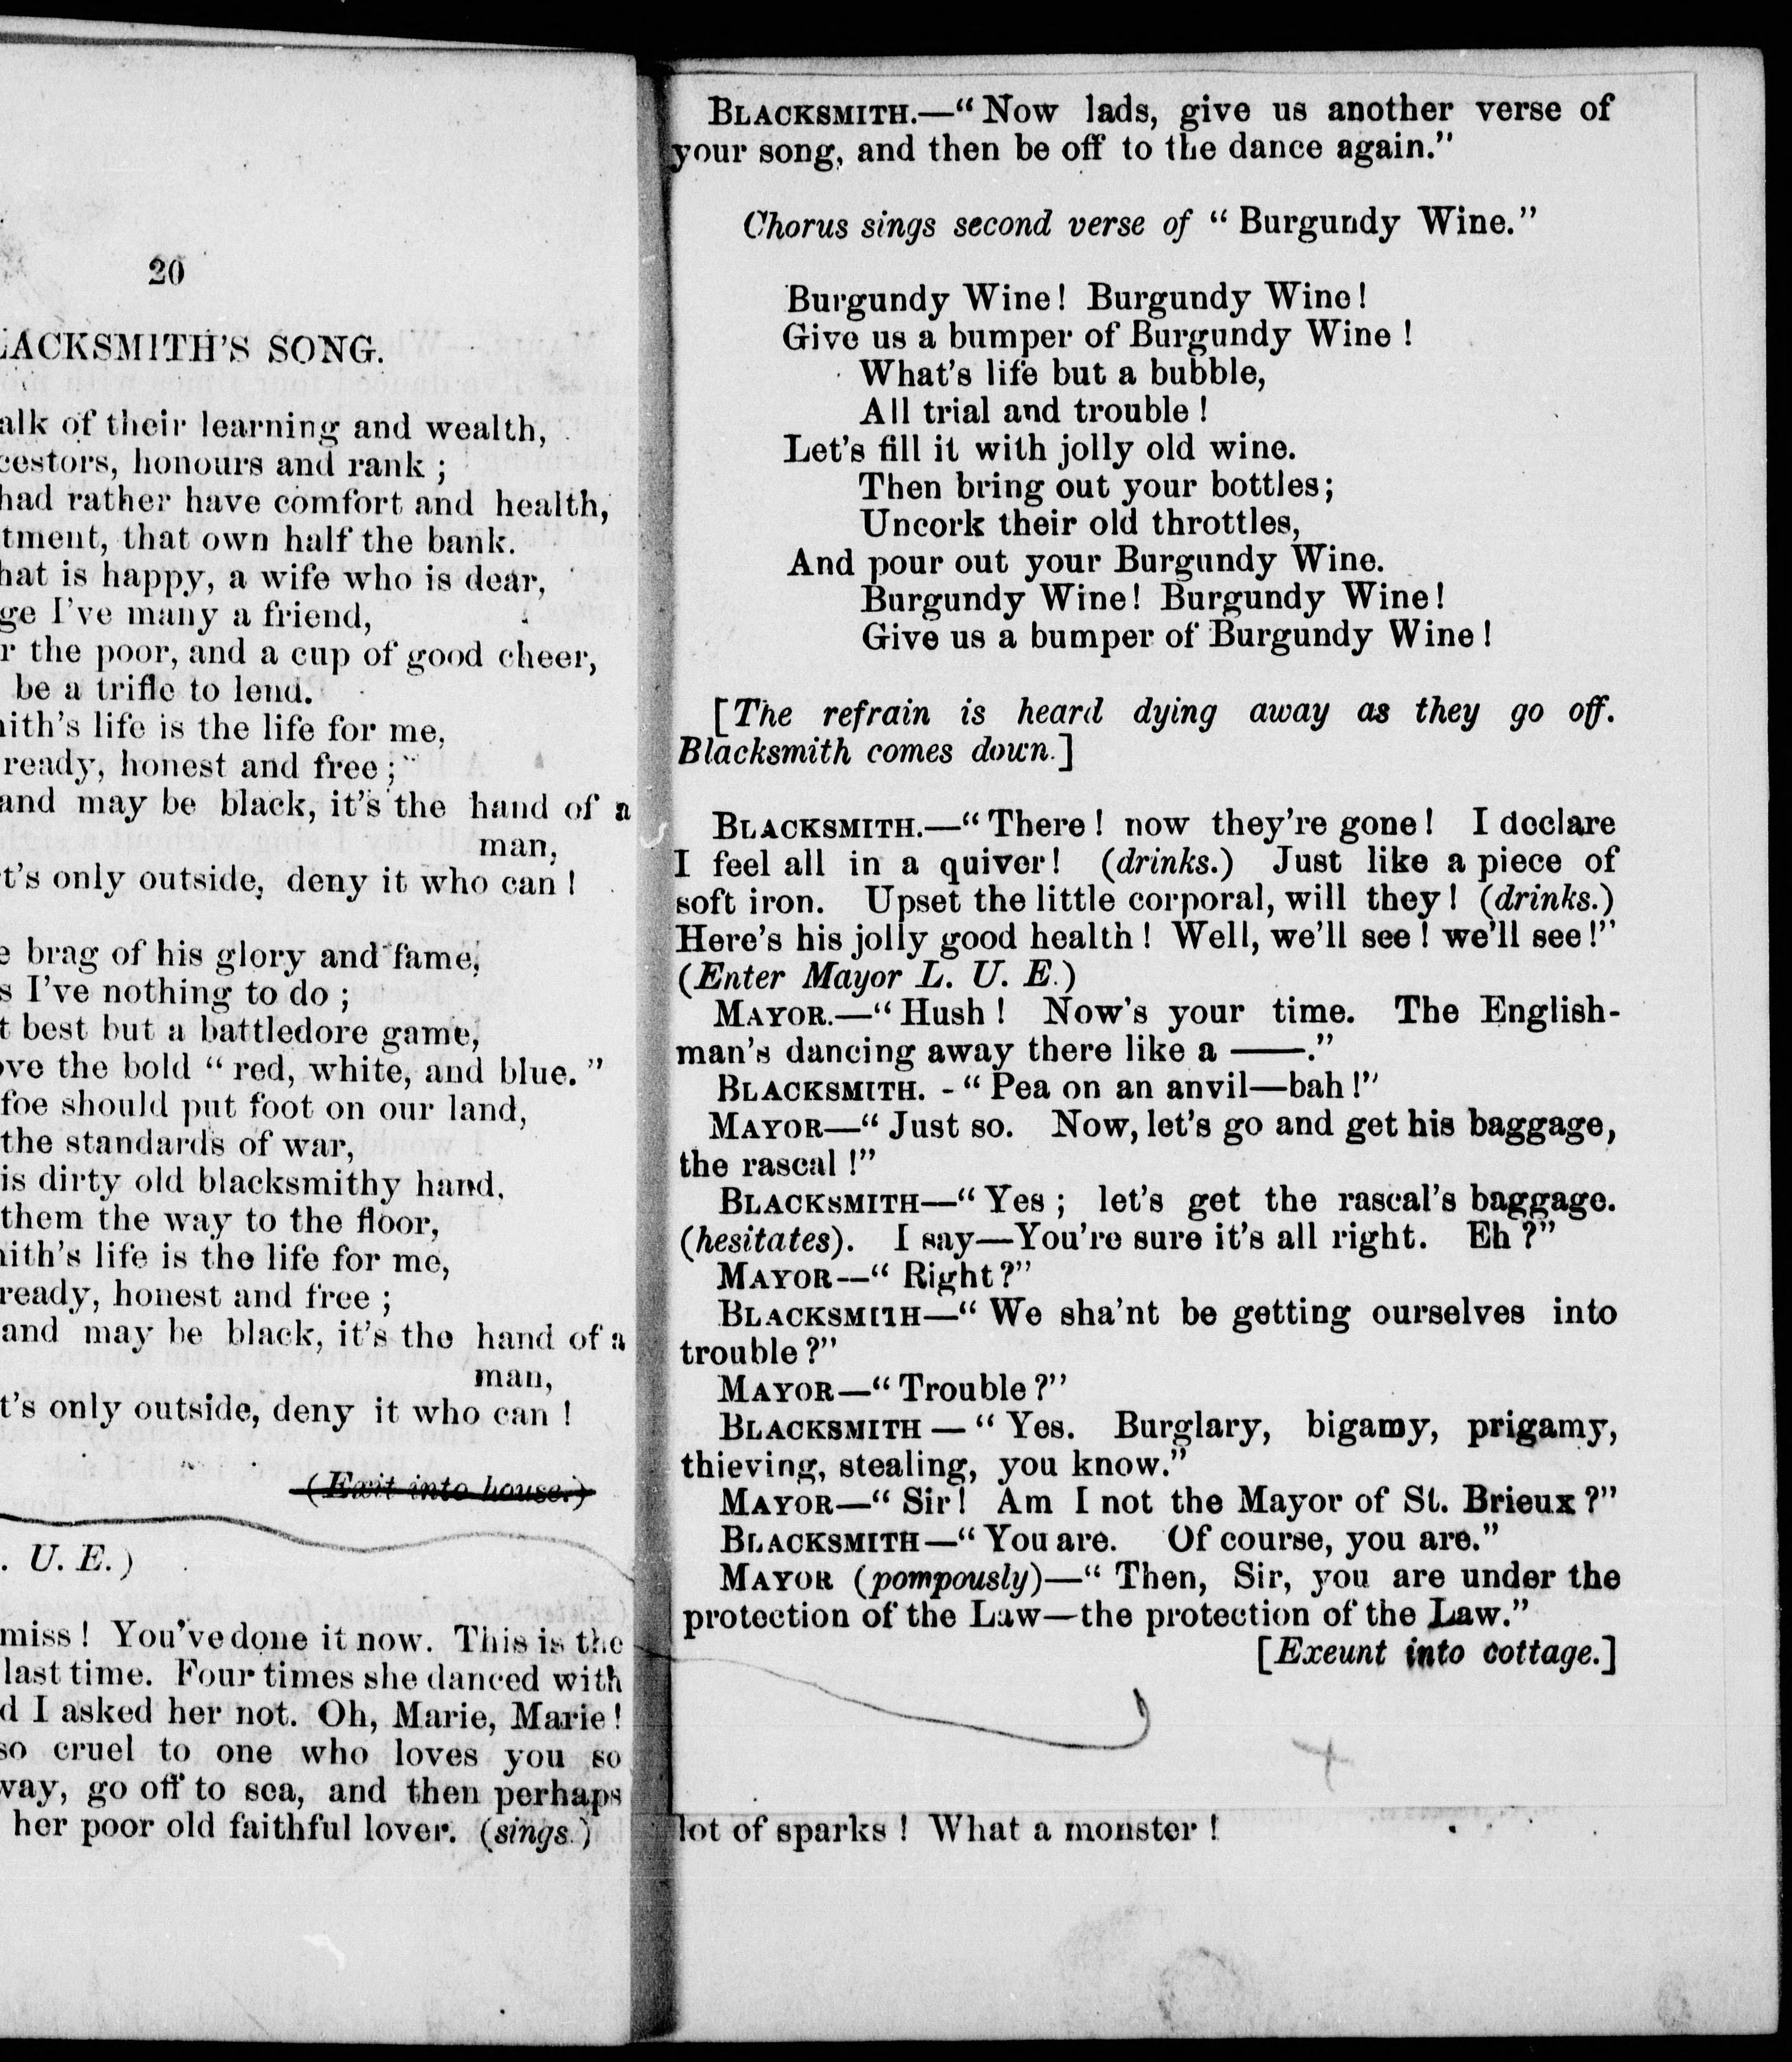 20
LACKSMITH'S SONG.
alk of their learning and wealth,
cestors, honours and rank ;
had rather have comfort and health,
tment, that own half the bank.
hat is happy, a wife who is dear,
ge I've many a friend,
r the poor, and a cup of good cheer,
be a trifle to lend.
ith's life is the life for me,
ready, honest and free ;
and may be black, it's the hand of a
man,
t's only outside, deny it who can !
e brag of his glory and fame,
s I've nothing to do ;
t best but a battledore game,
ove the bold " red, white, and blue. "
foe should put foot on our land,
the standards of war,
is dirty old blacksmithy hand,
them the way to the floor,
ith's life is the life for me,
ready, honest and free ;
and may be black, it's the hand of a
man,
t's only outside, deny it who can !
(Exit into house.)
. U. E.)
miss ! You've done it now. This is the
last time. Four times she danced with
d I asked her not. Oh, Marie, Marie !
so cruel to one who loves you so
way, go off to sea, and then perhaps
her poor old faithful lover. (sings.)
BLACKSMITH.—" Now lads, give us another verse of
your song, and then be off to the dance again."
Chorus sings second verse of " Burgundy Wine."
Burgundy Wine ! Burgundy Wine !
Give us a bumper of Burgundy Wine !
What's life but a bubble,
All trial and trouble !
Let's fill it with jolly old wine.
Then bring out your bottles;
Uncork their old throttles,
And pour out your Burgundy Wine.
Burgundy Wine ! Burgundy Wine !
Give us a bumper of Burgundy Wine !
[The refrain is heard dying away as they go off.
Blacksmith comes down.]
BLACKSMITH.—" There ! now they're gone ! I declare
I feel all in a quiver ! (drinks.) Just like a piece of
soft iron. Upset the little corporal, will they ! (drinks.)
Here's his jolly good health ! Well, we'll see ! we'll see !"
(Enter Mayor L. U. E.)
MAYOR.—" Hush ! Now's your time. The English-
man's dancing away there like a ——."
BLACKSMITH. - " Pea on an anvil—bah !"
MAYOR—" Just so. Now, let's go and get his baggage,
the rascal !"
BLACKSMITH—" Yes ; let's get the rascal's baggage.
(hesitates). I say—You're sure it's all right. Eh ?"
MAYOR—" Right ?"
BLACKSMITH—" We sha'nt be getting ourselves into
trouble ?"
MAYOR—" Trouble ?"
BLACKSMITH — " Yes. Burglary, bigamy, prigamy,
thieving, stealing, you know."
MAYOR—" Sir ! Am I not the Mayor of St. Brieux ?"
BLACKSMITH—" You are. Of course, you are."
MAYOR (pompously)—" Then, Sir, you are under the
protection of the Law—the protection of the Law."
[Exeunt into cottage.]
lot of sparks ! What a monster !